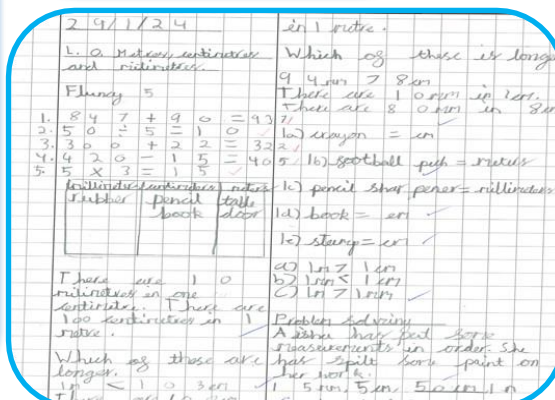 29/1/24
L.O. Metres, centimetres
and milimetres.
Fluency 5
1. 847 + 90 = 937
2. 50 ÷ 5 = 10
3. 300 + 22 = 322
4. 420 - 15 = 405
5. 5 x 3 = 15
millimetres centimetres meters
rubber pencil table
book door
There are 10
milimetres in one
centimetre. There are
100 centimetres in 1
metre.
Which of these are
longer.
1m < 103cm
in 1 metre.
Which of these is longe
9 4mm > 8cm
There are 10mm in 1cm.
There are 80mm in 8cm
1a) crayon = cm
1b) football pich = meters
1c) pencil sharpener = millimeters
1d) book = cm
1e) stamp = cm
a) 1m > 1cm
b) 1mm < 1cm
c) 1m > 1mm
Problem solving
Aisha has put some
measurements in order. She
has spilt some paint on
her work.
5mm, 5cm, 50cm, 1m